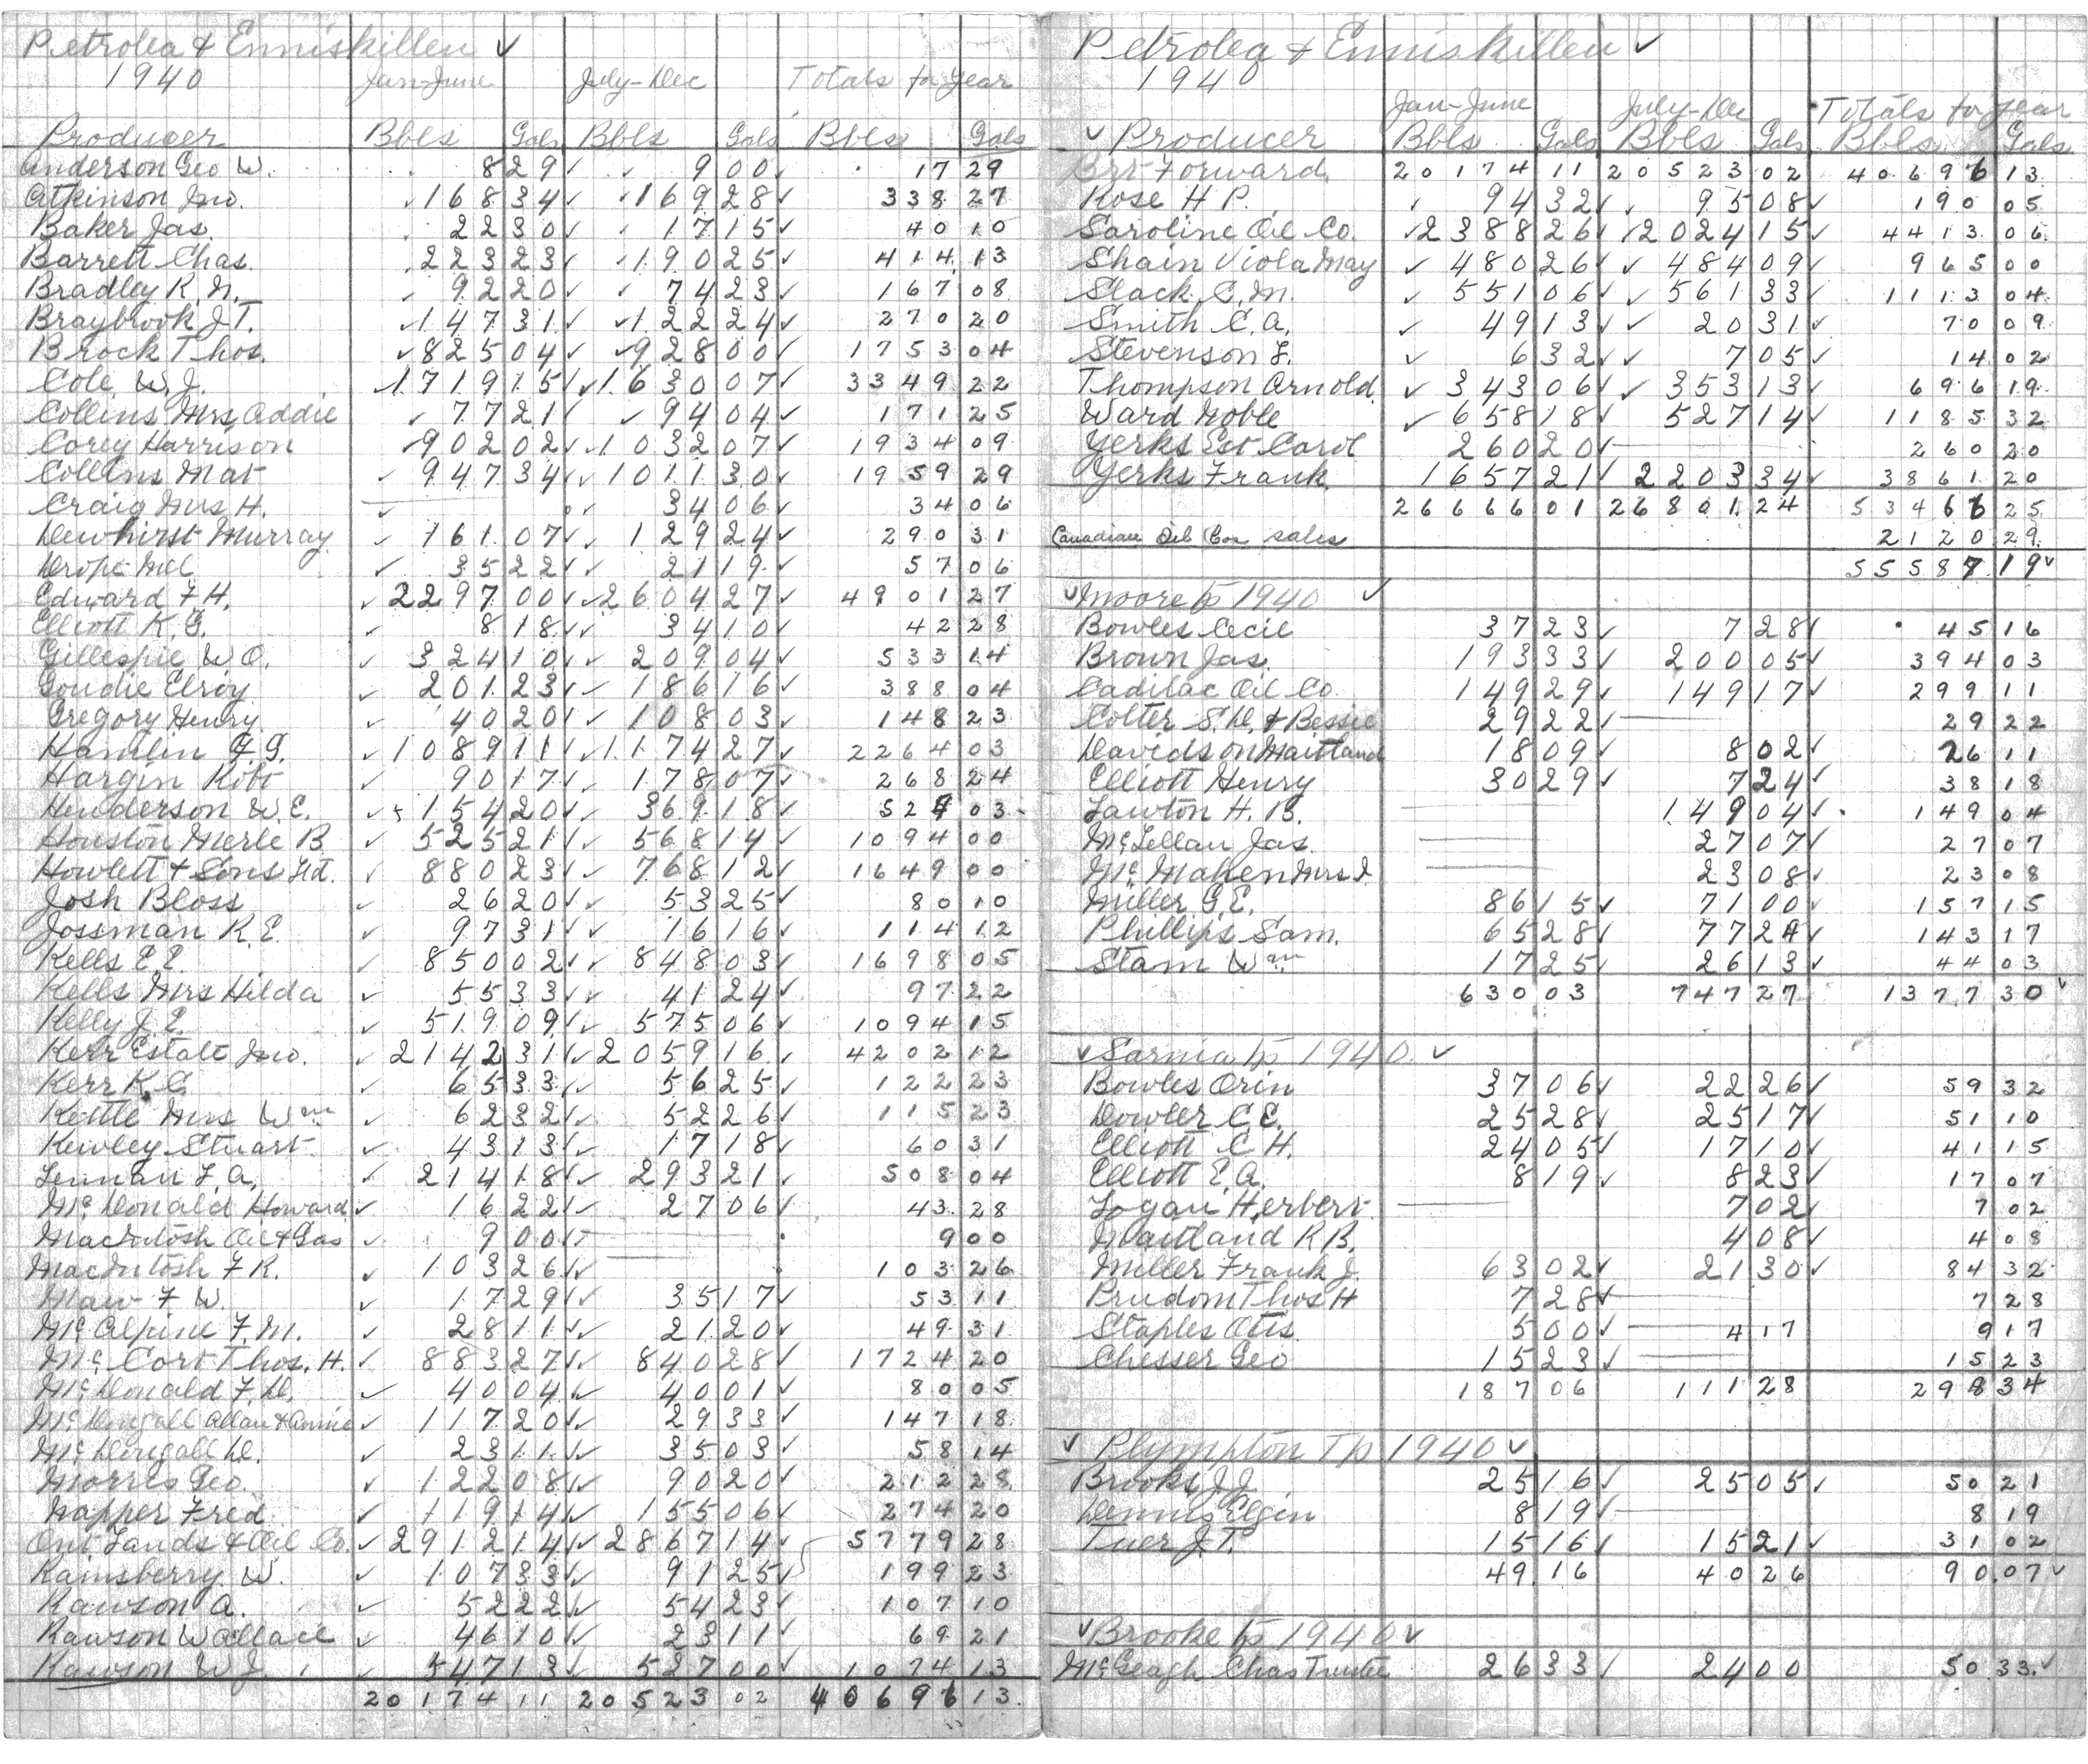 Petrolea & Enniskillen ✓
1940 Jan-June July-Dec Totals for year
Producer Bbls Gals Bbls Gals Bbls Gals
Anderson Geo W. 8 29 9 00 17 29
Atkinson Jno. 168 34 169 28 338 27
Baker Jas. 22 30 17 15 40 10
Barrett Chas. 223 23 190 25 414 13
Bradley R. N. 92 20 74 23 167 08
Braybrook J.T. 147 31 122 24 270 20
Brock Thos. 825 04 928 00 1753 04
Cole W.J. 1719 15 1630 07 3349 22
Collins Mrs Addie 77 21 94 04 171 25
Corey Harrison 902 02 1032 07 1934 09
Collins Mat 947 34 1011 30 1959 29
Craig Mrs H. 34 06 34 06
Dewhirst Murray 161 07 129 24 290 31
Drope Mel 35 22 21 19 57 06
Edward F H. 2297 00 2604 27 4901 27
Elliott K. G. 8 18 34 10 42 28
Gillespie W O. 324 10 209 04 533 14
Goudie Elroy 201 23 186 16 388 04
Gregory Henry 40 20 108 03 148 23
Hamlin G.G. 1089 11 1174 27 2264 03
Hargin Robt 90 17 178 07 268 24
Henderson W.E. 154 20 369 18 524 03
Houston Merle B 525 21 568 14 1094 00
Howlett & Sons Ltd. 880 23 768 12 1649 00
Josh Bloss 26 20 53 25 80 10
Jossman R E 97 31 16 16 114 12
Kells E E. 850 02 848 03 1698 05
Kells Mrs Hilda 55 33 41 24 97 22
Kelly J. E. 519 09 575 06 1094 15
Kerr Estate Jno. 2142 31 2059 16 4202 12
Kerr K. C. 65 33 56 25 122 23
Kettle Mrs Wm 62 32 52 26 115 23
Kewley Stuart 43 13 17 18 60 31
Lennan L. A. 214 18 293 21 508 04
McDonald Howard 16 22 27 06 43 28
MacIntosh Oil & Gas 9 00 9 00
MacIntosh F K. 103 26 103 26
Maw F W. 17 29 35 17 53 11
McAlpine F. M. 28 11 21 20 49 31
McCort Thos. H. 883 27 840 28 1724 20
McDonald F. D. 40 04 40 01 80 05
McDougall Allan & Annie 117 20 29 33 147 18
McDougall D. 23 11 35 03 58 14
Morris Geo. 122 08 90 20 212 28
Napper Fred 119 14 155 06 274 20
Ont Lands & Oil Co. 2912 14 2867 14 5779 28
Rainsberry W. 107 33 91 25 199 23
Rawson A. 52 22 54 23 107 10
Rawson Wallace 46 10 23 11 69 21
Rawson W J. 547 13 527 00 1074 13
20174 11 20523 02 40696 13
Petrolea & Enniskillen ✓
1940
Jan-June July-Dec Totals for year
✓ Producer Bbls Gals Bbls Gals Bbls. Gals
Brt Forward 20174 11 20523 02 40696 13
Rose H P. 94 32 95 08 190 05
Saroline Oil Co. 2388 26 2024 15 4413 06
Shain Viola May 480 26 484 09 965 00
Slack C. M. 551 06 561 33 1113 04
Smith C. A. 49 13 20 31 70 09
Stevenson L. 6 32 7 05 14 02
Thompson Arnold 343 06 353 13 696 19
Ward Noble 658 18 527 14 1185 32
Yerks Est Carol 260 20 260 20
Yerks Frank 1657 21 2203 34 3861 20
26666 01 26801 24 53466 25
Canadian Oil Cos sales 2120 29
55587 19 ✓
✓ Moore Tp 1940 ✓
Bowles Cecil 37 23 7 28 45 16
Brown Jas. 193 33 200 05 394 03
Cadilac Oil Co 149 29 149 17 299 11
Colter S.D. & Bessie 29 22 29 22
Davidson Maitland 18 09 8 02 26 11
Elliott Henry 30 29 7 24 38 18
Lawton H. B. 149 04 149 04
McLellan Jas. 27 07 27 07
McMahen Mrs I 23 08 23 08
Miller G.E. 86 15 71 00 157 15
Phillips Sam. 65 28 77 24 143 17
Stam Wm 17 25 26 13 44 03
630 03 747 27 1377 30 ✓
✓ Sarnia Tp 1940. ✓
Bowles Orin 37 06 22 26 59 32
Dowler C E. 25 28 25 17 51 10
Elliott C H. 24 05 17 10 41 15
Elliott E. A. 8 19 8 23 17 07
Logan Herbert 7 02 7 02
Maitland R B. 4 08 4 08
Miller Frank J. 63 02 21 30 84 32
Prudom Thos H 7 28 7 28
Staples Otis 5 00 4 17 9 17
Chesser Geo 15 23 15 23
187 06 111 28 298 34
✓ Plympton Tp 1940 ✓
Brooks J.J. 25 16 25 05 50 21
Dennis Elgin 8 19 8 19
Tuer J.T. 15 16 15 21 31 02
49 16 40 26 90 07 ✓
✓ Brooke Tp 1940 ✓
McGeagh Chas Trustee 26 33 24 00 50 33 ✓